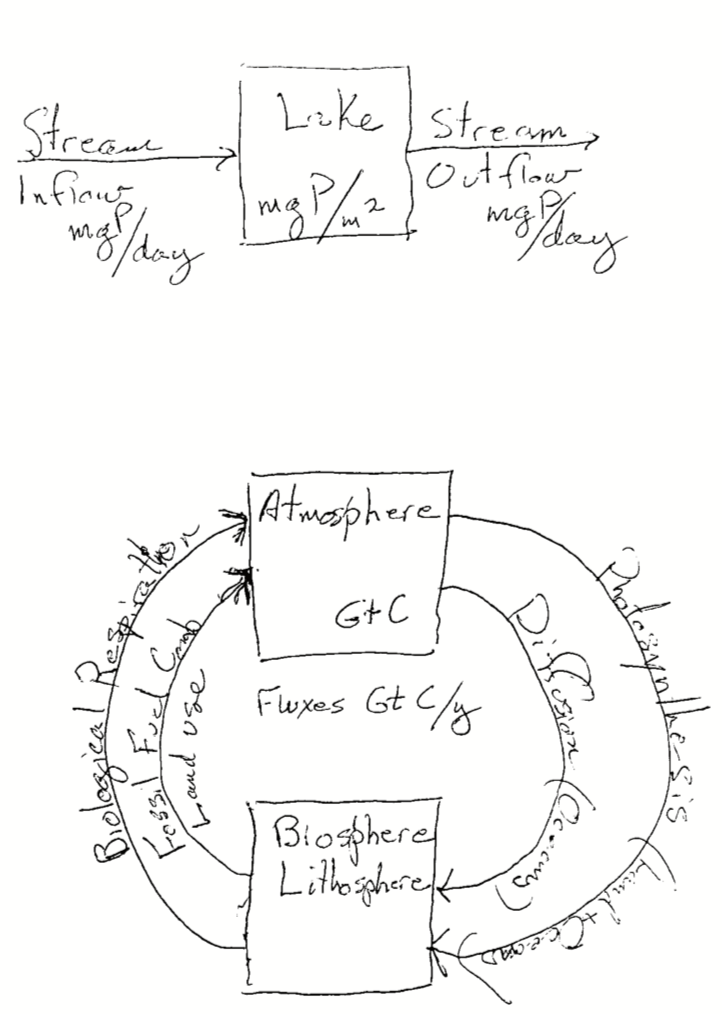 Stream
Inflow
mgP/day
Lake
mgP/m2
Stream
Outflow
mgP/day
Atmosphere
GtC
Fluxes GtC/y
Biosphere
Lithosphere
Biological Respiration
Fossil Fuel Comb
Land use
Diffusion (Oceans)
Photosynthesis
(Land + Oceans)